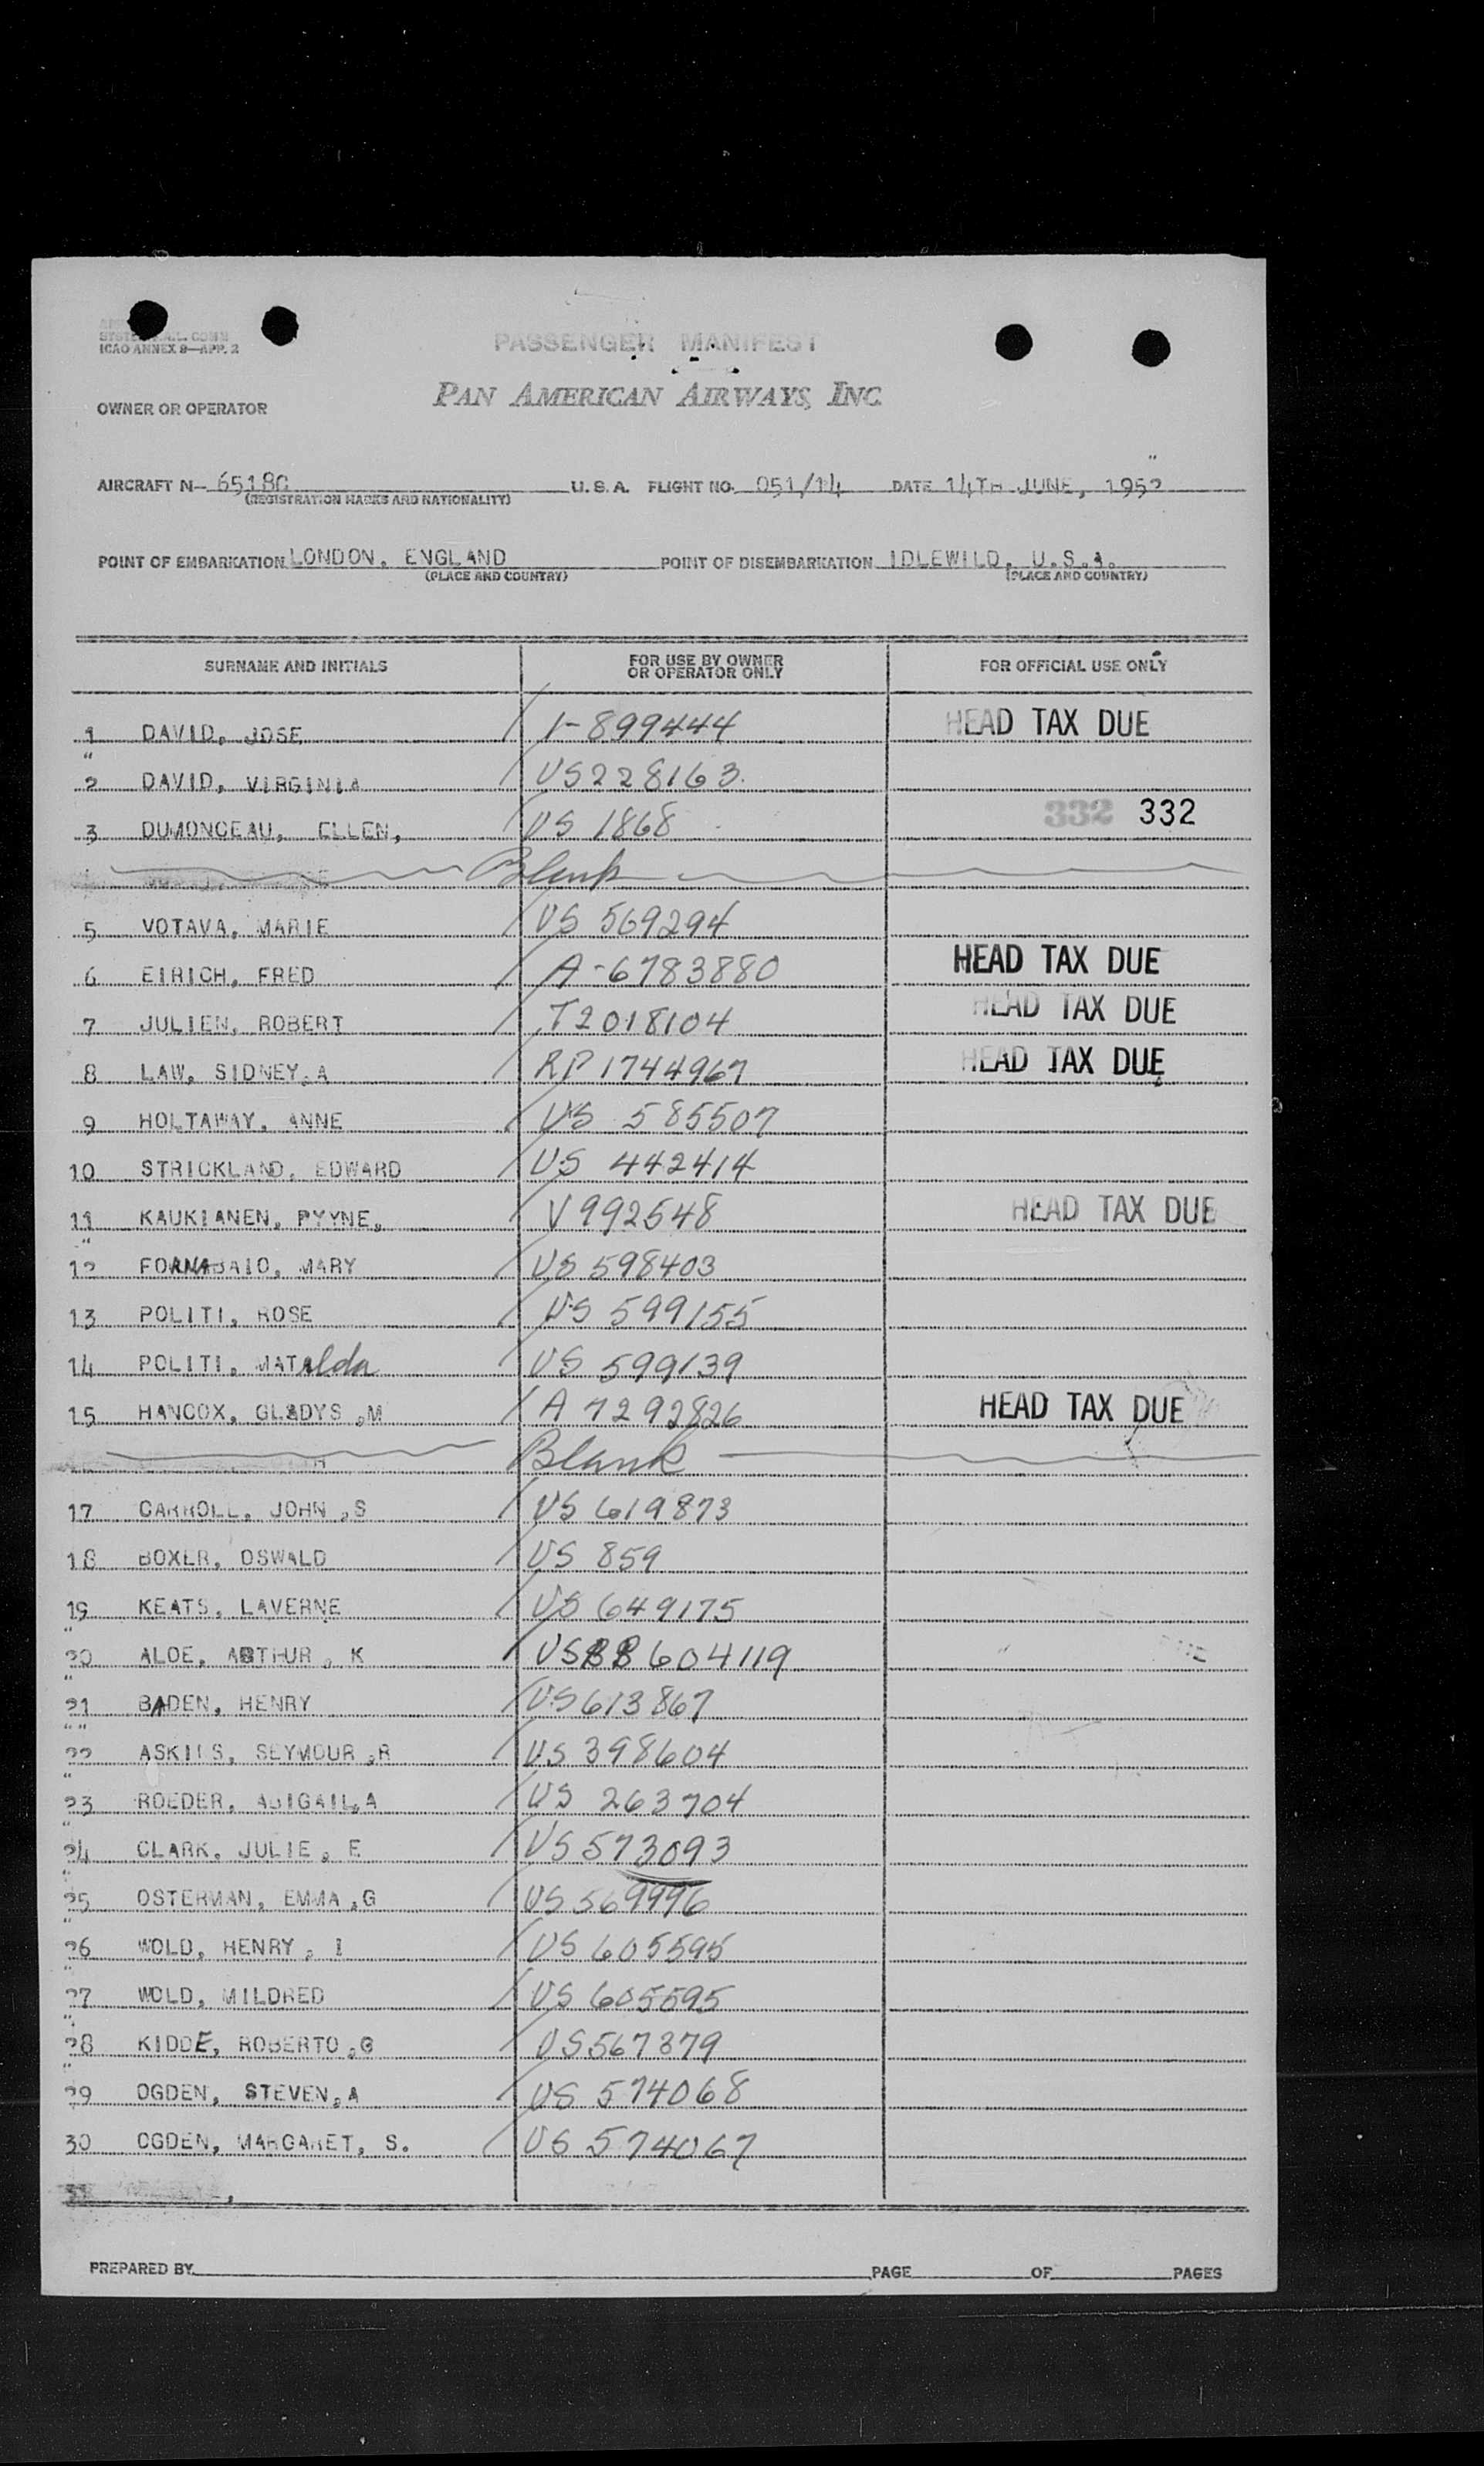 ICAO ANNEX 9—APP. 2
PASSENGER MANIFEST
PAN AMERICAN AIRWAYS, INC.
OWNER OR OPERATOR
AIRCRAFT N- 65180 U. S. A. FLIGHT NO. 051/14 DATE 14TH JUNE, 1952
(REGISTRATION MARKS AND NATIONALITY)
POINT OF EMBARKATION LONDON, ENGLAND POINT OF DISEMBARKATION IDLEWILD, U.S.A.
(PLACE AND COUNTRY) (PLACE AND COUNTRY)
SURNAME AND INITIALS FOR USE BY OWNER OR OPERATOR ONLY FOR OFFICIAL USE ONLY
1 DAVID, JOSE / 1-899444 HEAD TAX DUE
2 DAVID, VIRGINIA / US228163
332 332
3 DUMONCEAU, ELLEN, / US 1868
Blank
5 VOTAVA, MARIE / US 569294
6 EIRICH, FRED / A-6783880 HEAD TAX DUE
7 JULIEN, ROBERT / T2018104 HEAD TAX DUE
8 LAW, SIDNEY,A / RP1744967 HEAD TAX DUE
9 HOLTAWAY, ANNE / US 585507
10 STRICKLAND, EDWARD / US 442414
11 KAUKIANEN, PYYNE, / V992548 HEAD TAX DUE
12 FORNABAIO, MARY / US 598403
13 POLITI, ROSE / US 599155
14 POLITI, MATAlda / US 599139
15 HANCOX, GLADYS ,M / A 7292826 HEAD TAX DUE
Blank
17 CARROLL, JOHN ,S / US 619873
18 BOXER, OSWALD / US 859
19 KEATS, LAVERNE / US 649175
20 ALOE, ARTHUR, K / US 604119
21 BADEN, HENRY / US613867
22 ASKIIS, SEYMOUR ,R / US398604
23 ROEDER, ABIGAIL,A / US 263704
24 CLARK, JULIE, E / US573093
25 OSTERMAN, EMMA ,G / US569996
26 WOLD, HENRY, I / US 605595
27 WOLD, MILDRED / US 605595
28 KIDDE, ROBERTO ,G / US567879
29 OGDEN, STEVEN,A / US 574068
30 OGDEN, MARGARET, S. / US 574067
31
PREPARED BY PAGE OF PAGES